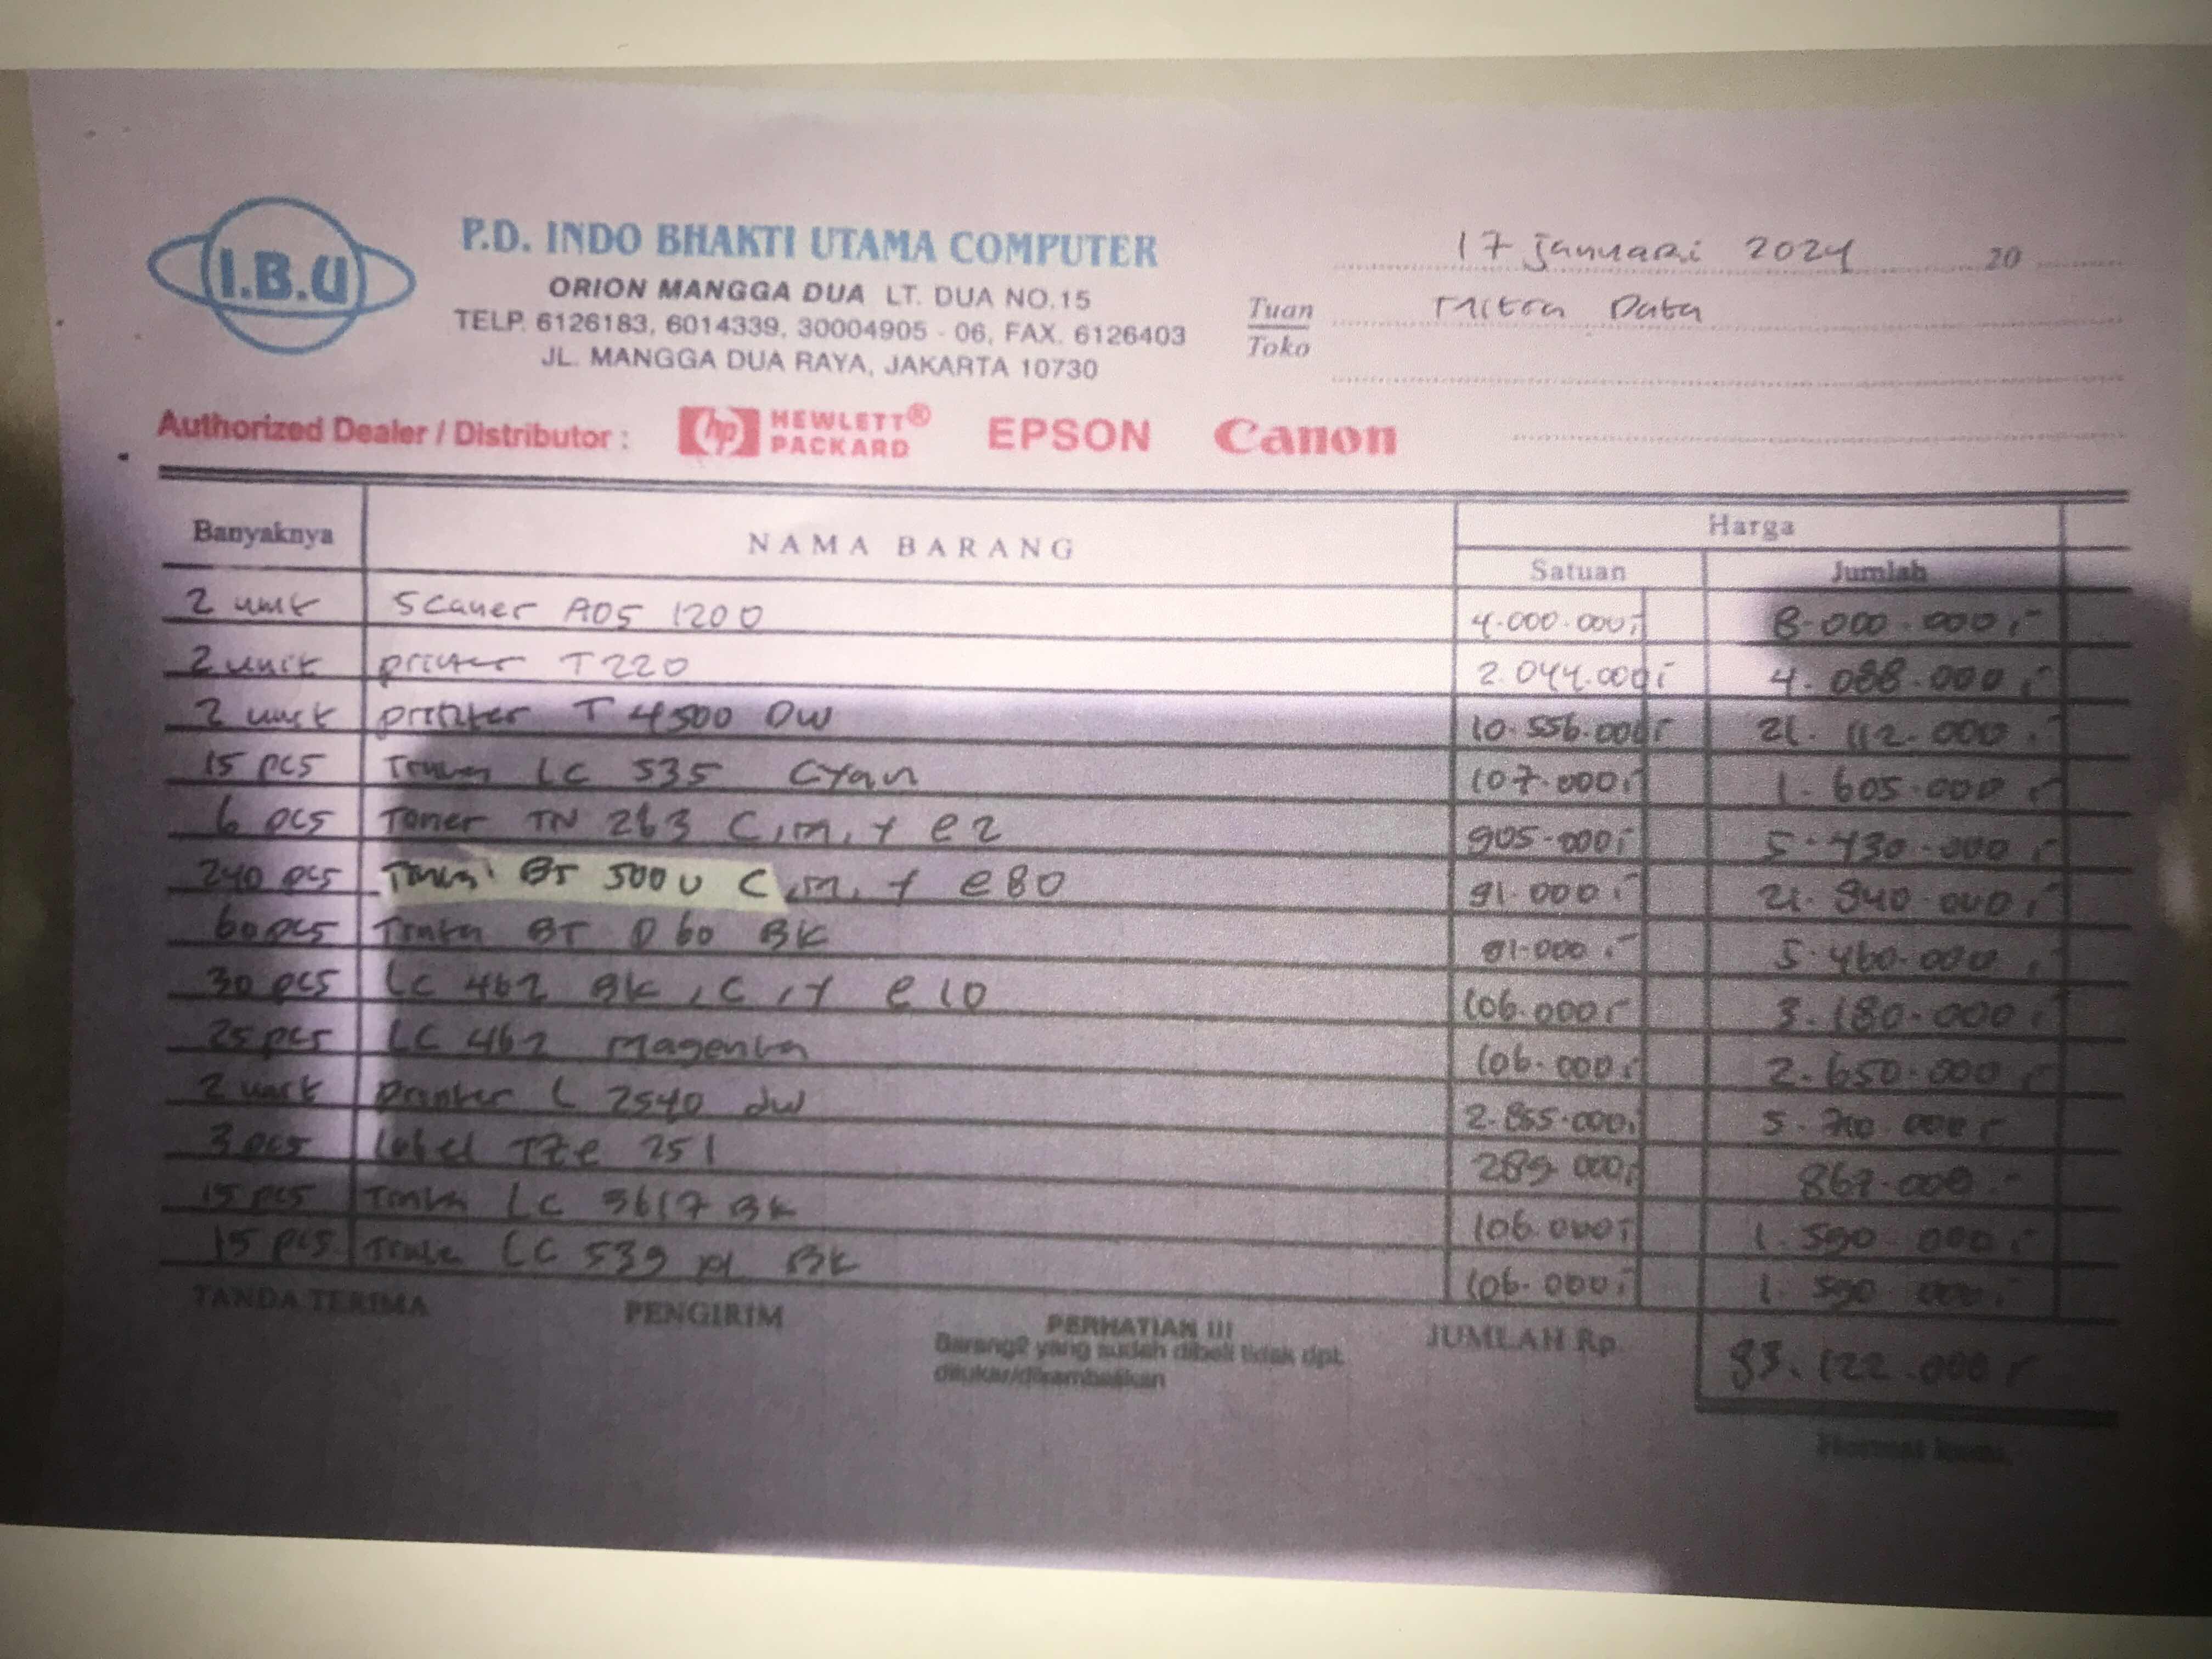 I.B.U
P.D. INDO BHAKTI UTAMA COMPUTER
ORION MANGGA DUA LT. DUA NO.15
TELP. 6126183, 6014339, 30004905 - 06, FAX. 6126403
JL. MANGGA DUA RAYA, JAKARTA 10730
17 Januari 2024 20
Tuan Mitra Data
Toko
Authorized Dealer / Distributor : hp HEWLETT® PACKARD EPSON Canon
Banyaknya NAMA BARANG Harga
Satuan Jumlah
2 unit Scaner ADS 1200 4.000.000,- 8.000.000,-
2 unit printer T220 2.044.000,- 4.088.000,-
2 unit printer T 4500 DW 10.556.000,- 21.112.000,-
15 pcs LC 535 Cyan 107.000,- 1.605.000,-
6 pcs Toner TN 263 C,m,y @2 905.000,- 5.430.000,-
240 pcs Tinta BT 5000 C,m,y @80 91.000,- 21.840.000,-
60 pcs Tinta BT D60 BK 91.000,- 5.460.000,-
30 pcs LC 462 BK,C,Y @10 106.000,- 3.180.000,-
25 pcs LC 462 Magenta 106.000,- 2.650.000,-
2 unit printer L 2540 dw 2.855.000,- 5.710.000,-
3 pcs label TZe 251 289.000,- 867.000,-
15 pcs Tinta LC 3617 BK 106.000,- 1.590.000,-
15 pcs LC 539 xl BK 106.000,- 1.590.000,-
TANDA TERIMA PENGIRIM PERHATIAN !!! JUMLAH Rp. 83.122.000,-
Barang2 yang sudah dibeli tidak dpt.
ditukar/dikembalikan
Hormat kami,